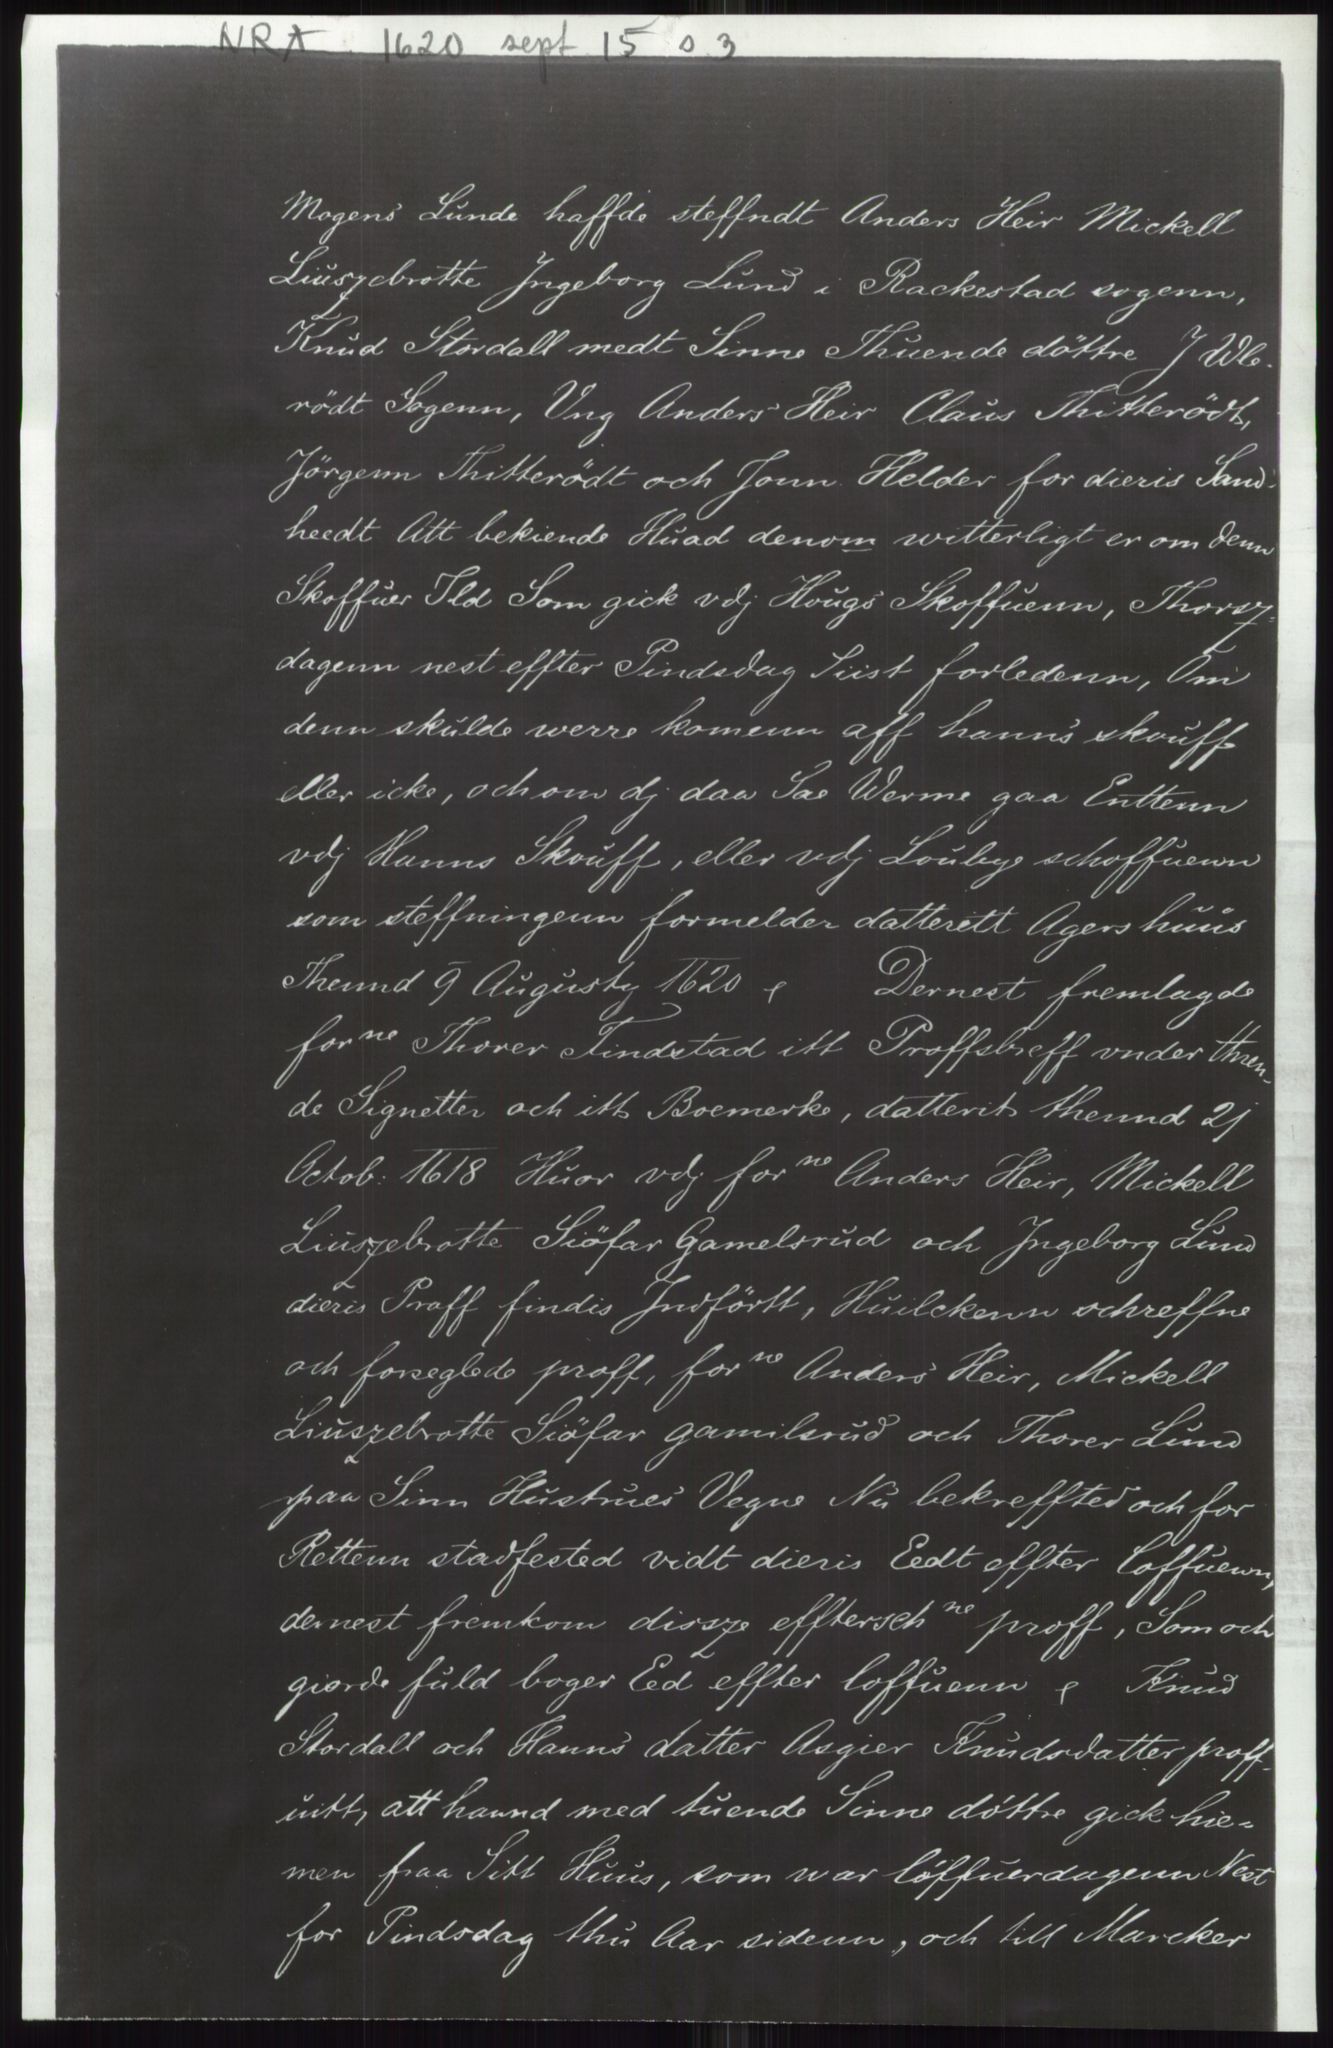 NRA 1620 sept 15 s 3
Mogens Lunde haffde steffndt Anders Heir Mickell
Liuszebrotte Jngeborg Lund i Rackestad sogenn,
Knud Stordall medt Sinne Thuende döttre J Wle-
rödt Sogenn, Vng Anders Heir Claus Thitterödt,
Jörgenn Thitterödt och Jonn Helder for dieris Sand-
heedt Att bekiende Huad denom witterligt er om denn
Skoffuer Ild Som gick vdj Hougs Skoffuenn, Thorsz-
dagenn nest effter Pindsdag Siist forledenn, Om
denn skulde werre komenn aff hanns skouff
eller icke, och om dj daa Sae Werme gaa Enttenn
vdj Hanns Skouff, eller vdj Loubye schoffuenn
som steffningenn formelder datterett Agershuus
Thennd 9 Augusty 1620 Dernest fremlagde
for ne Thorer Findstad itt Proffsbreff vnder thren-
de Signetter och itt Boemerke, datterit thennd 2j
Octob: 1618 Huor vdj for ne Anders Heir, Mickell
Liuszebrotte Siöfar Gamelsrud och Jngeborg Lund
dieris Proff findis Jndförtt, Huilckenn schreffne
och forseglede proff, for ne Anders Heir, Mickell
Liuszebrotte Siöfar gamilsrud och Thorer Lund
paa Sinn Hustrues Vegne Nu bekreffted och for
Rettenn stadfested vidt dieris Eedt effter loffuenn,
dernest fremkom disze efftersch ne proff, Som och
giorde fuld boger Eed effter loffuenn Knud
Stordall och Hanns datter Asgier Knudsdatter proff-
uitt, att hannd med tuende Sinne döttre gick hie-
men fraa Sitt Huus, som war löffuerdagenn Nest
for Pindsdag thu Aar sidenn, och till Marcker